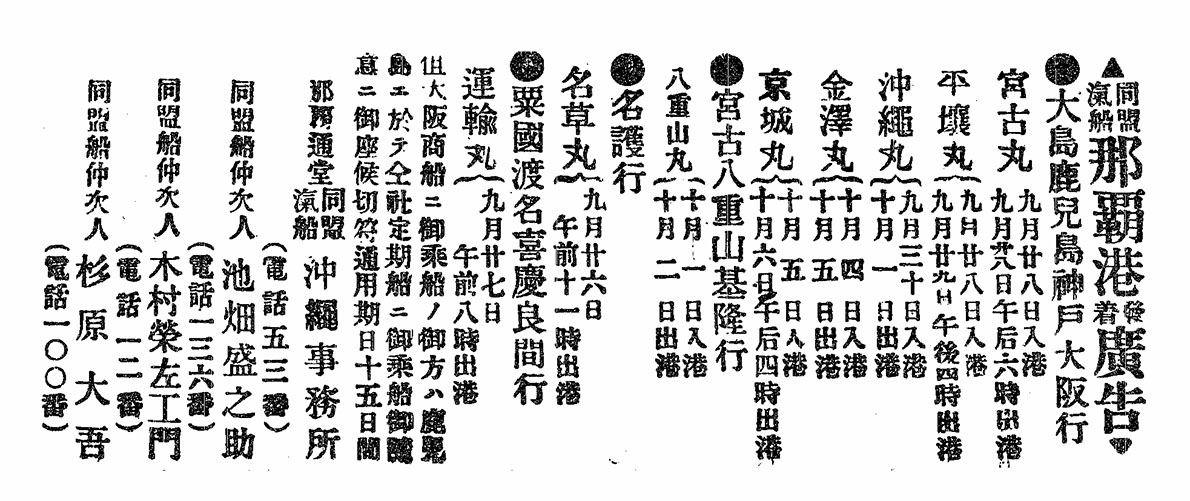 ▲同盟滊船那覇港發着廣告▼
●大島鹿兒島神戸大阪行
宮古丸 九月廿八日入港
九月廿八日午后六時出港
平壤丸 九月廿八日入港
九月廿九日午後四時出港
沖繩丸 九月三十日入港
十月一日出港
金澤丸 十月四日入港
十月五日出港
京城丸 十月五日入港
十月六日午后四時出港
●宮古八重山基隆行
八重山丸 十月一日入港
十月二日出港
●名護行
名草丸 九月廿六日
午前十一時出港
●粟國渡名喜慶良間行
運輸丸 九月廿七日
午前八時出港
但大阪商船ニ御乘船ノ御方ハ鹿兒
島エ於テ仝社定期船ニ御乘船御
意ニ御座候切符通用期日十五日間
那覇通堂 同盟滊船 沖繩事務所
(電話五三番)
同盟船仲次人 池畑盛之助
(電話一三六番)
同盟船仲次人 木村榮左工門
(電話一二番)
同盟船仲次人 杉原大吾
(電話一〇〇番)